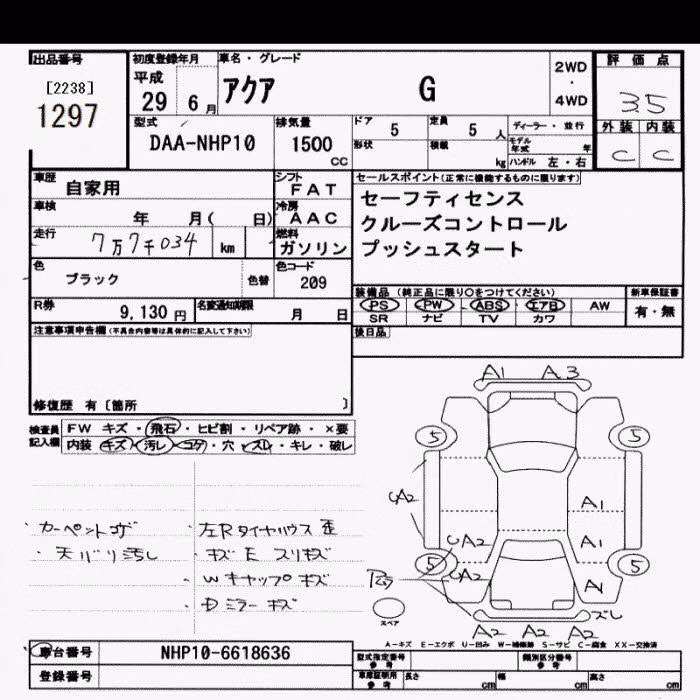 出品番号
[2238]
1297
初度登録年月
平成
29 6 月
車名・グレード
アクア G
2WD
・
4WD
評価点
3.5
外装 内装
C C
型式
DAA-NHP10
排気量
1500
CC
ドア 5
形状
定員 5 人
積載 kg
ディーラー・並行
モデル年式 年
ハンドル 左・右
車歴 自家用
車検 年 月( 日)
走行 7万7千034 km
シフト
FAT
冷房
AAC
燃料
ガソリン
色 ブラック 色替
色コード
209
R券 9,130 円
名変通知期限 月 日
セールスポイント(正常に機能するものに限ります)
セーフティセンス
クルーズコントロール
プッシュスタート
装備品 (純正品に限り○をつけてください)
PS PW ABS エアB AW
SR ナビ TV カワ
新車保証書
有・無
後日品
注意事項申告欄(不具合内容等は具体的に記入して下さい)
修復歴 有〔箇所 〕
検査員記入欄
FW キズ・飛石・ヒビ割・リペア跡・×要
内装 キズ・汚レ・コゲ・穴・スレ・キレ・破レ
・カーペットコゲ
・天バリ汚し
・左Rタイヤハウス歪
・キズE スリキズ
・Wキャップキズ
・Dミラーキズ
A1 A3
5 5
A2
A1
UA2 A1
5 5
UA2 A1
スペア
ズレ
A2 A2 A2
A-キズ E-エクボ U-凹み W-補修跡 S-サビ C-腐食 XX-交換済
車台番号 NHP10-6618636
登録番号
型式指定番号
参考
類別区分番号
参考
車庫証明用
参考
長さ cm 幅 cm 高さ cm